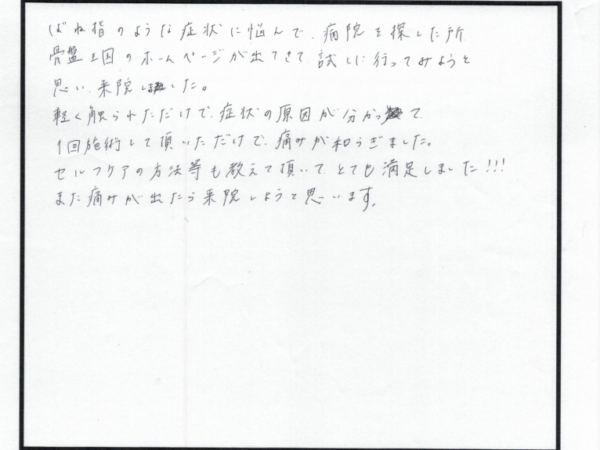 ばね指のような症状に悩んで、病院を探した所
骨盤王国のホームページが出てきて試しに行ってみようと
思い、来院しました。
軽く触られただけで、症状の原因が分かって
1回施術して頂いただけで、痛みが和らぎました。
セルフケアの方法等も教えて頂いて、とても満足しました!!!
また痛みが出たら来院しようと思います。